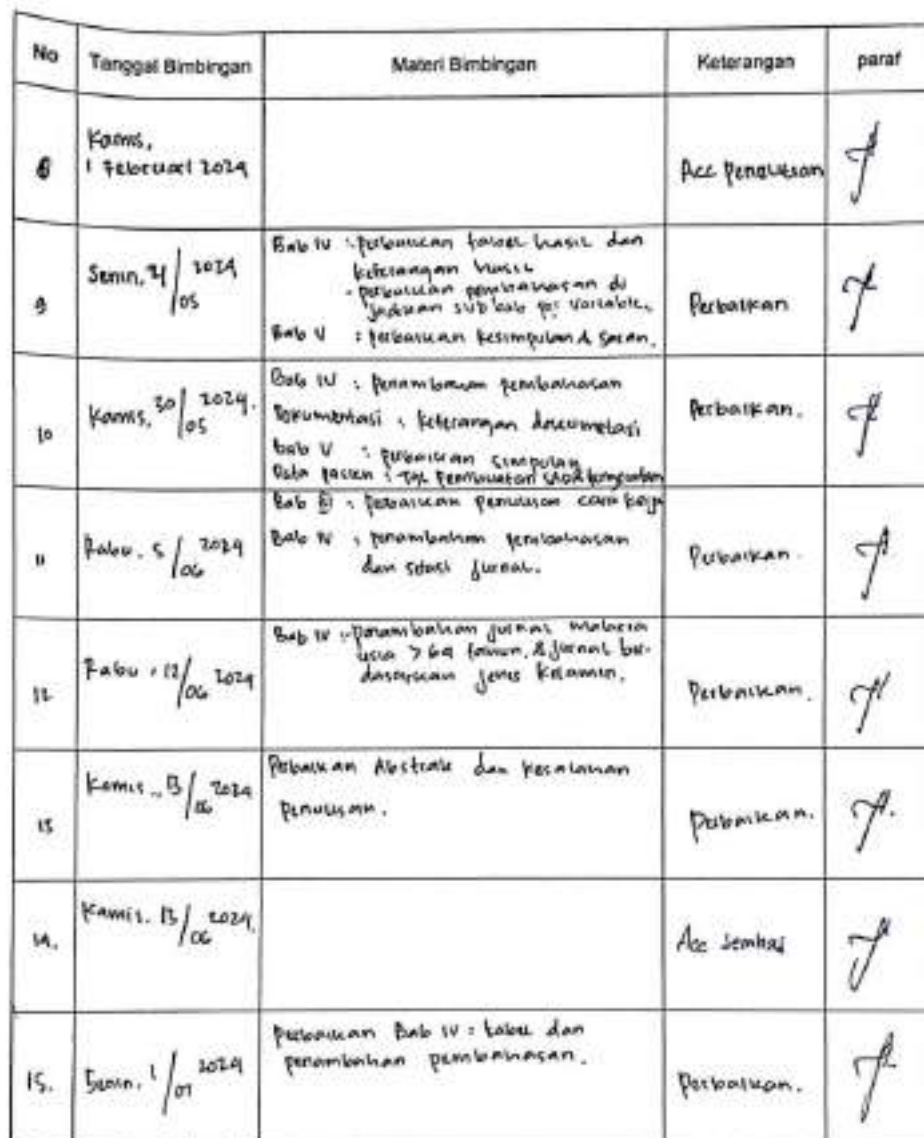 No Tanggal Bimbingan Materi Bimbingan Keterangan paraf
8 Kamis,
1 Februari 2024 Acc Penelitian
9 Senin, /05 2024 Perbaikan
Bab IV : - perbaikan tabel hasil dan
keterangan hasil
- perbaikan pembahasan di
jadikan sub bab per variable.
Bab V : perbaikan kesimpulan & saran.
10 Kamis, 30/05 2024. Perbaikan.
Bab IV : penambahan pembahasan
Dokumentasi : keterangan documetasi
bab V : perbaikan simpulan
Data pasien : Tgl pembuatan
11 Rabu, 5/06 2024 Perbaikan.
Bab : perbaikan penulisan cara kerja
Bab IV : penambahan pembahasan
dan sitasi jurnal.
12 Rabu, 12/06 2024 Perbaikan.
Bab IV : penambahan jurnal malaria
usia > 64 tahun, & jurnal ber-
dasarkan jenis kelamin.
13 Kamis, 13/06 2024 Perbaikan.
Perbaikan Abstrak dan kesalahan
penulisan.
14. Kamis, 13/06 2024. Acc Semhas
15. Senin, 1/07 2024 Perbaikan.
perbaikan Bab IV : tabel dan
penambahan pembahasan.